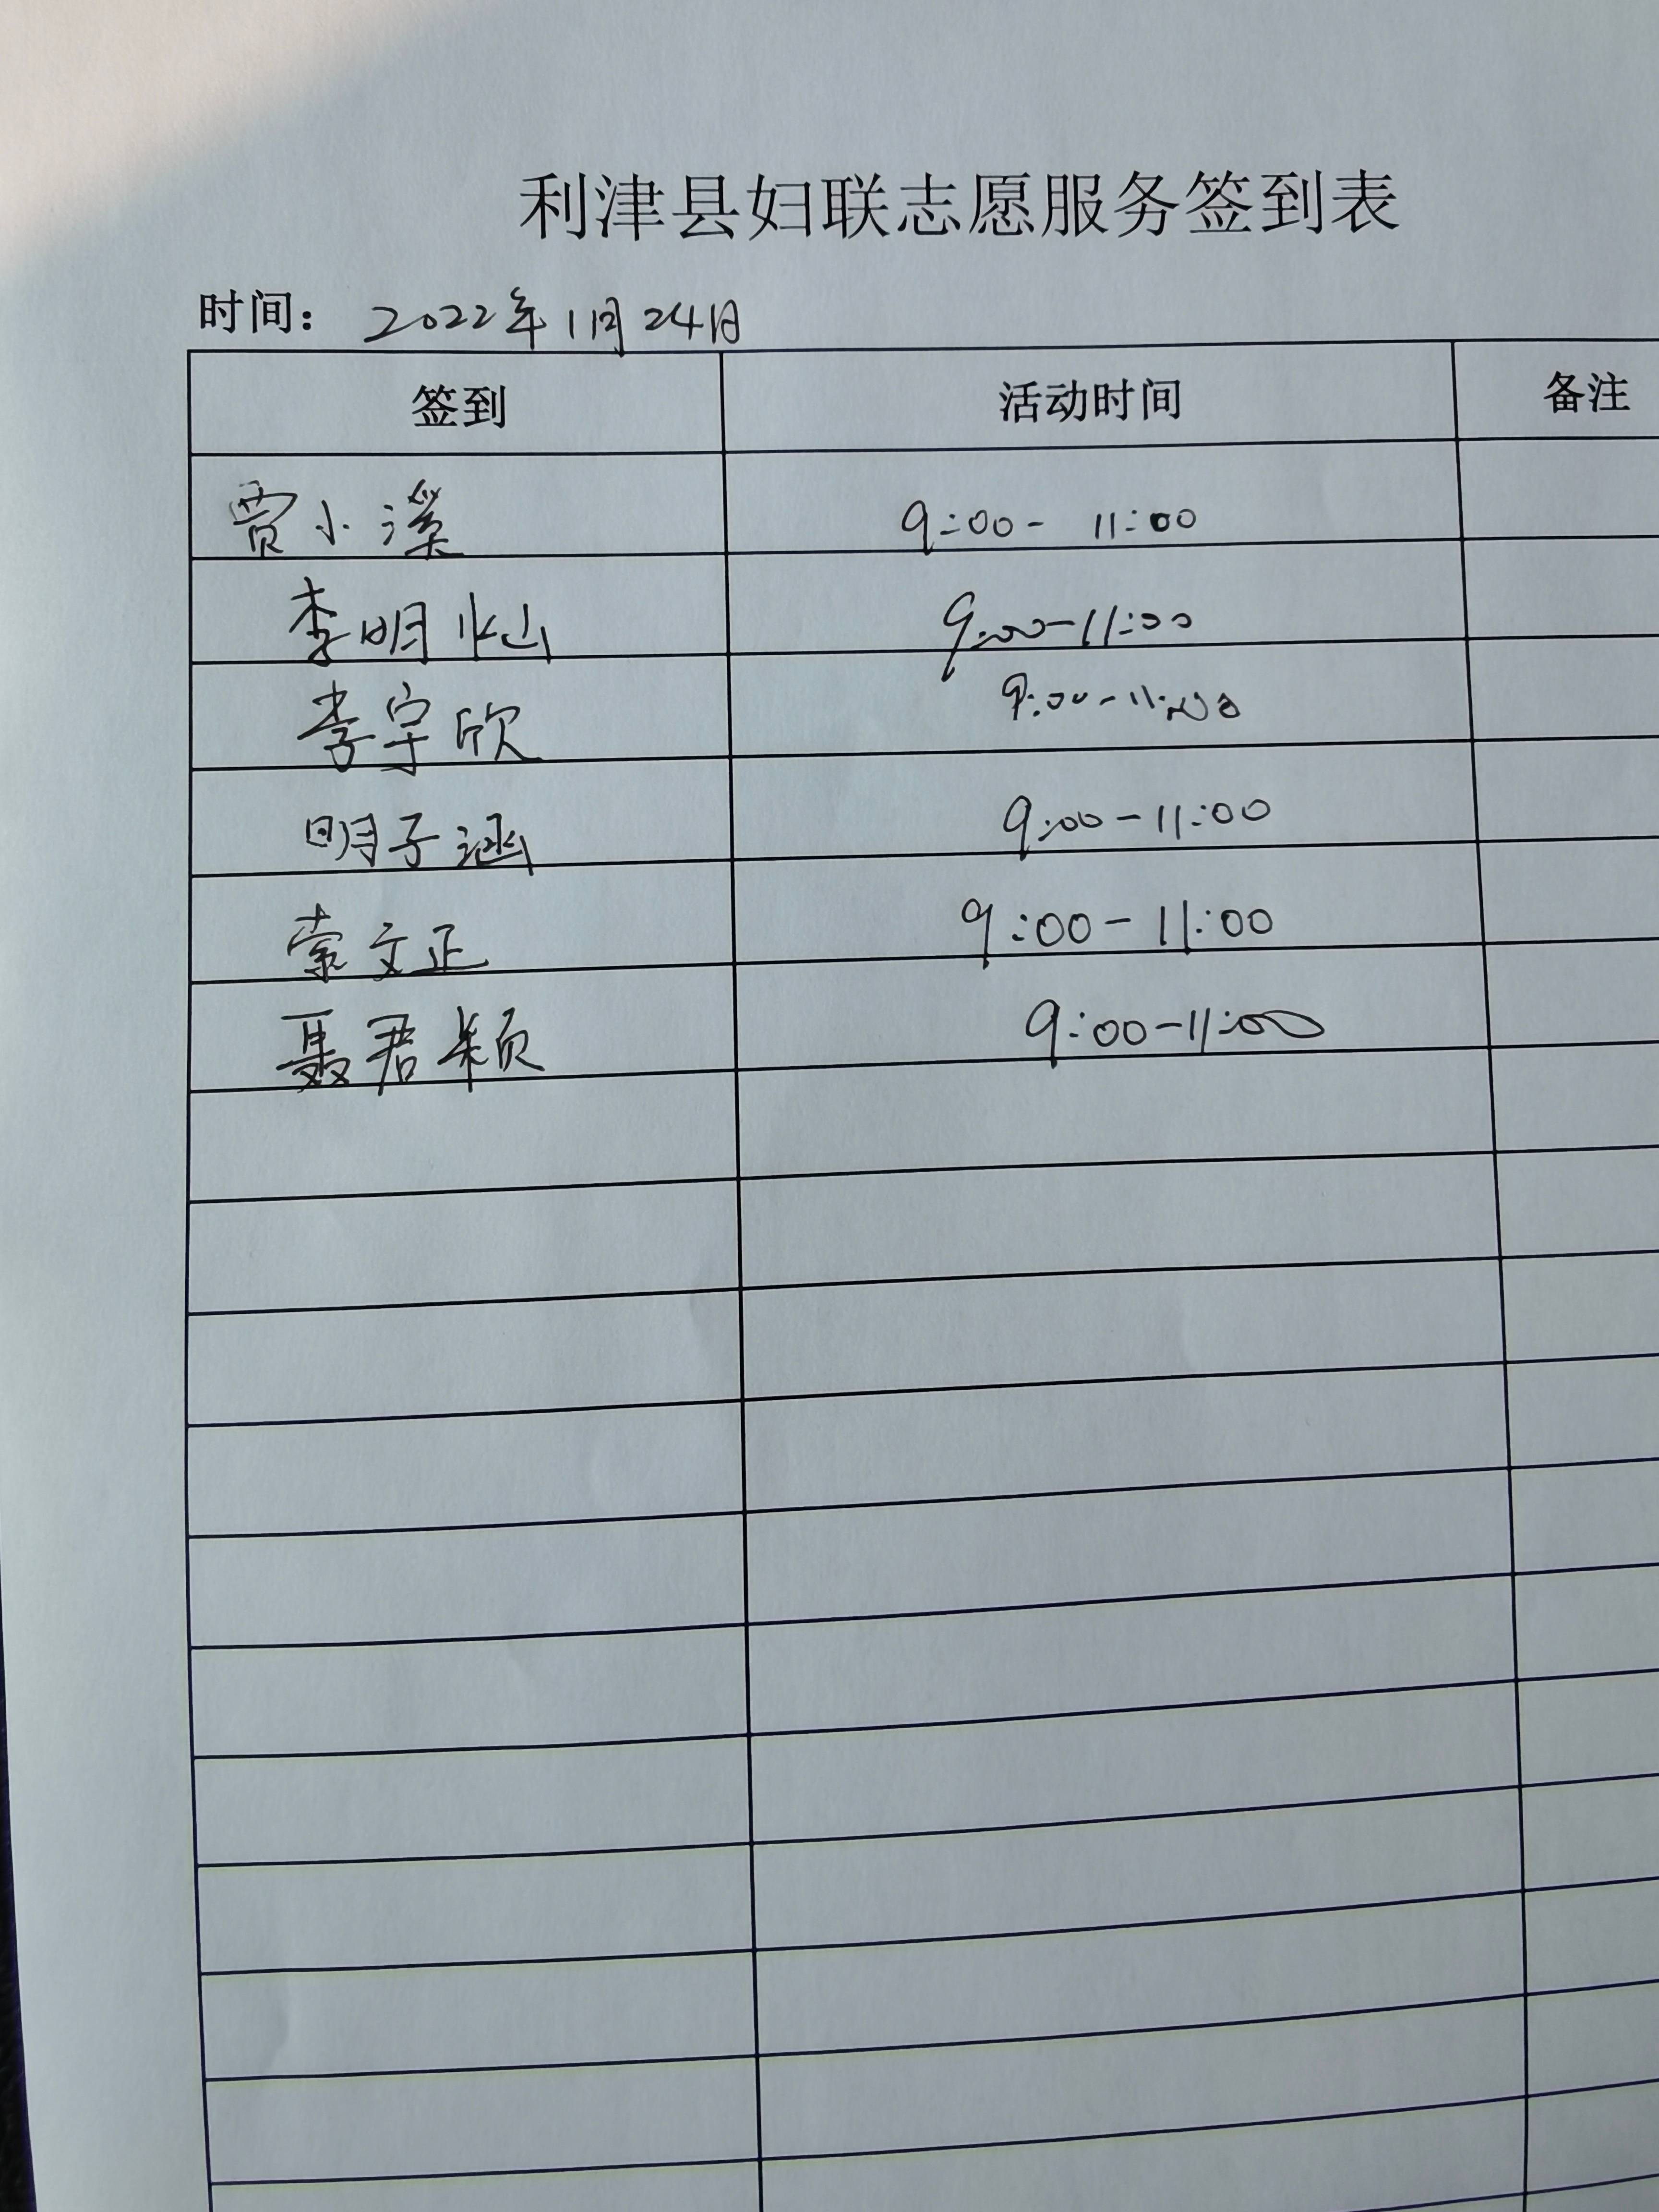 利津县妇联志愿服务签到表
时间： 2022年1月24日
签到 活动时间 备注
贾小溪 9:00- 11:00
李明灿 9:00-11:00
李宇欣 9:00-11:00
明子涵 9:00-11:00
索文正 9:00-11:00
聂君颖 9:00-11:00